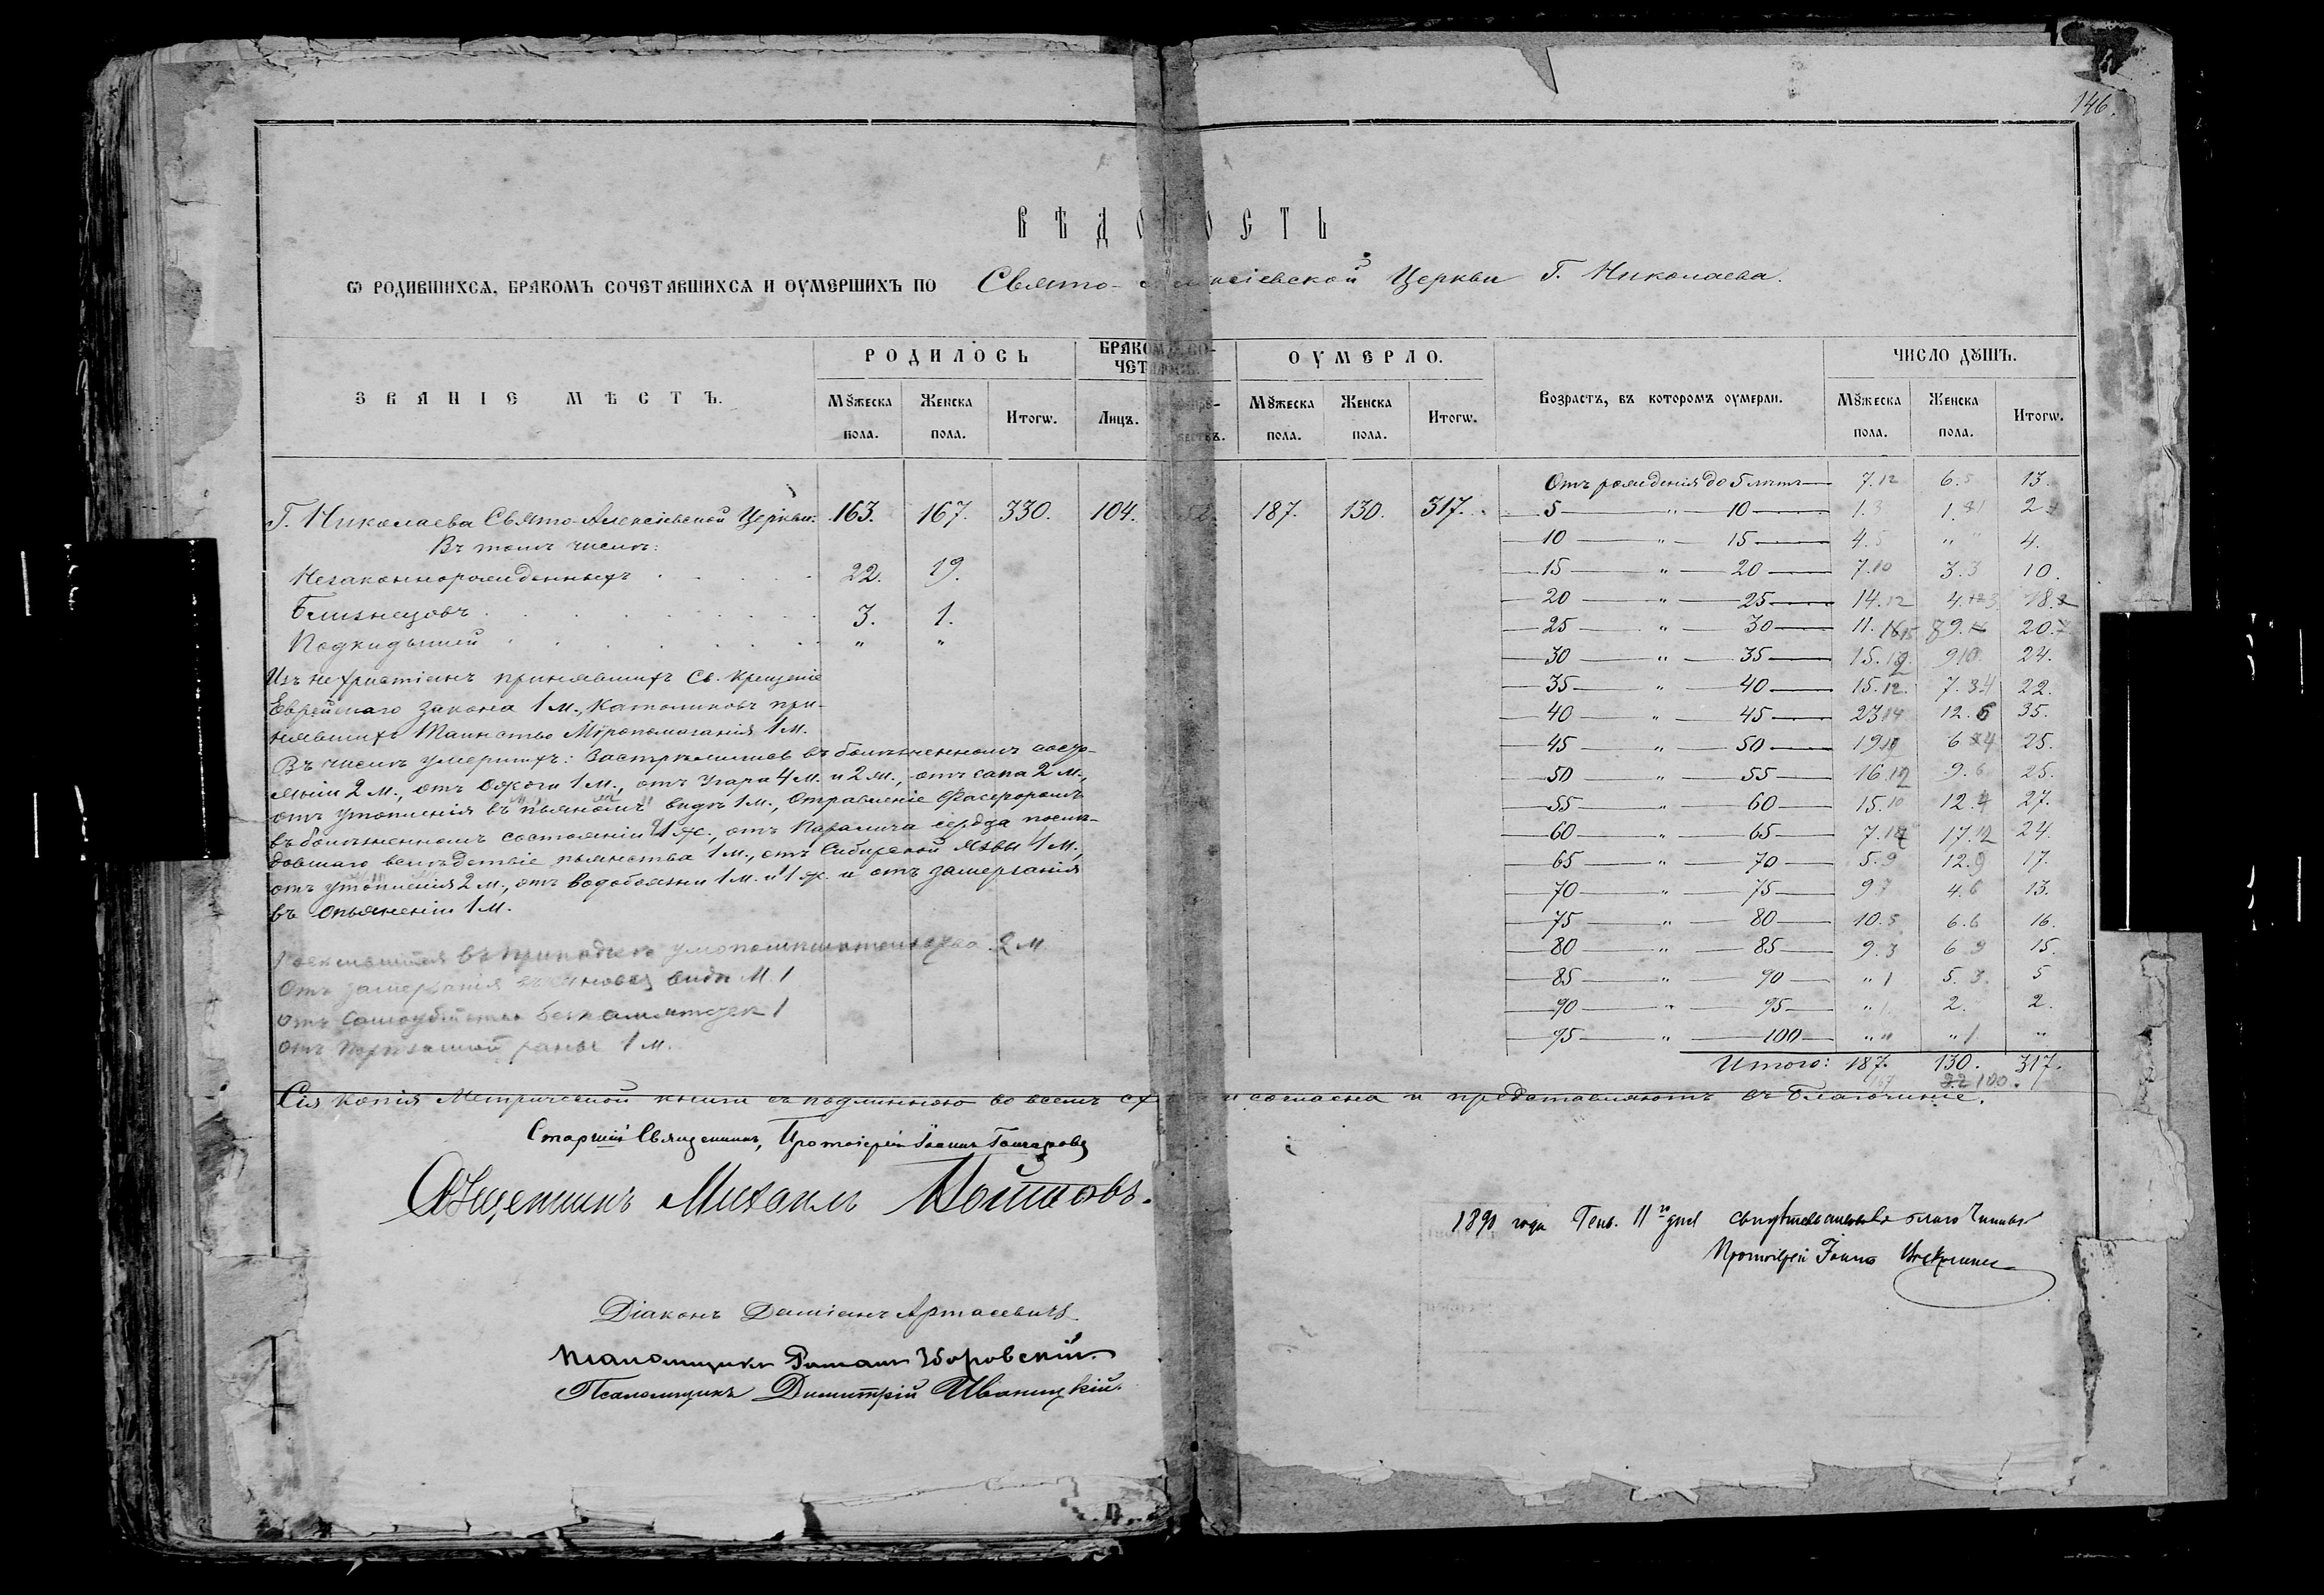 146.
ВѢДОМОСТЬ
Ѡ РОДИВШИХСЯ, БРАКОМЪ СОЧЕТАВШИХСЯ И ОУМЕРШИХЪ ПО Свято-Алексіевской Церкви Г. Николаева.
ЗВАНІЕ МѢСТЪ. РОДИЛОСЬ БРАКОМЪ СО- ОУМЕРЛО. Возрастъ, въ которомъ оумерли. ЧИСЛО ДꙊШЪ.
ЧЕТАЛОСЬ.
МꙊжеска пола. Женска пола. Итогѡ. Лицъ. МꙊжеска пола. Женска пола. Итогѡ. МꙊжеска пола. Женска пола. Итогѡ.
Г. Николаева Свято-Алексіевской Церкви. 163. 167. 330. 104. 52. 187. 130. 317.
Въ томъ числѣ:
Незаконнорожденныхъ 22. 19.
Близнецовъ 3. 1.
Подкидышей " "
Изъ нехристіанъ принявшихъ Св. Крещеніе
Еврейскаго закона 1 м., Католиковъ при-
нявшихъ Таинство Мѵропомазанія 1 м.
Въ числѣ умершихъ: Застрѣлился въ болѣзненномъ состо-
яніи 2 м., отъ ожоги 1 м., отъ угара 4 м. и 2 ж., отъ сапа 2 м.,
отъ утопленія въ пьяномъ видѣ 1 м., Отравленіе Фосфоромъ
въ болѣзненномъ состояніи 1 ж., отъ паралича сердца послѣ-
довшаго вслѣдствіе пьянства 1 м., отъ Сибирской язвы 1 м.,
отъ утопленія 2 м., отъ водобоязни 1 м. и 1 ж. и отъ замерзанія
въ опьяненіи 1 м.
въ припадкѣ умопомѣшательства 2 м
отъ замерзанія видѣ м. 1
отъ самоубійства 1
отъ раны 1 м.
Отъ рожденія до 5 лѣтъ 7. 12 6. 5 13.
5 " 10 1. 3 1. 2
10 " 15 4. 5 " " 4.
15 " 20 7. 10 3. 3 10.
20 " 25 14. 12 4. 18.
25 " 30 11. 9. 20.
30 " 35 15. 9 10 24.
35 " 40 15. 12. 7. 22.
40 " 45 23 14 12. 6 35.
45 " 50 19 6 25.
50 " 55 16. 9. 6 25.
55 " 60 15. 10 12. 4 27.
60 " 65 7. 17. 12 24.
65 " 70 5. 9 12. 9 17.
70 " 75 9 7 4. 6 13.
75 " 80 10. 5 6. 6 16.
80 " 85 9. 3 6 9 15.
85 " 90 " 1 5. 3. 5
90 " 95 " 1 2. 2.
95 " 100 " " " 1 "
Итого: 187. 130. 317.
167 100.
Сія копія Метрической книги съ подлинною во всемъ согласна и представляютъ въ Благочиніе.
Старшій Священникъ, Протоіерей Іоаннъ Гончаровъ
Священникъ Михаилъ
Діаконъ Даміанъ Артасевичъ
Псаломщикъ Романъ Зборовскій.
Псаломщикъ Димитрій Иваницкій.
1890 года Генв. 11го дня свидѣтельствовалъ благочинный
Протоіерей Іоаннъ